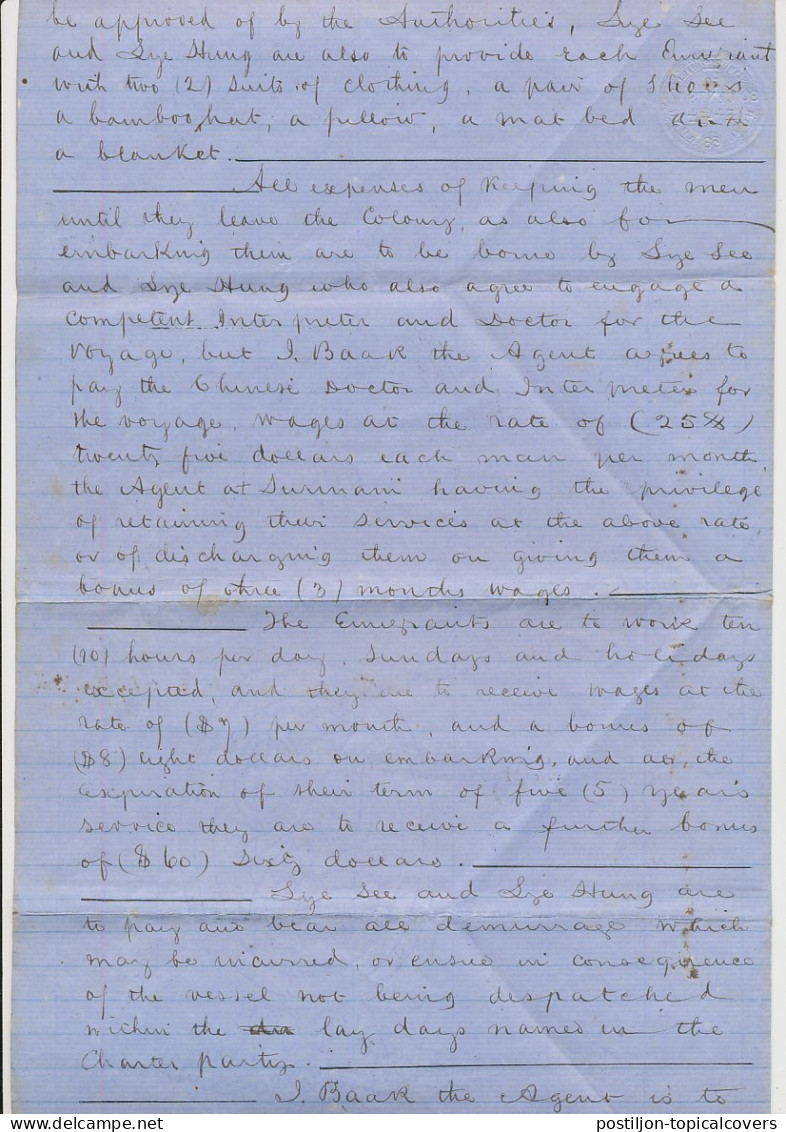 be approved of by the Authorities, Sye See
and Sye Hung are also to provide each Emigrant
with two (2) suits of clothing, a pair of shoes
a bamboo hat, a pillow, a mat bed and
a blanket.
All expenses of keeping the men
until they leave the Colony, as also for
embarking them are to be borne by Sye See
and Sye Hung who also agree to engage a
competent Interpreter and Doctor for the
voyage, but J. Baak the Agent agrees to
pay the Chinese Doctor and Interpreter for
the voyage, wages at the rate of (25$)
twenty five dollars each man per month,
the Agent at Surinam having the privilege
of retaining their services at the above rate,
or of discharging them on giving them a
bonus of three (3) months wages.
The Emigrants are to work ten
(10) hours per day, Sundays and holidays
excepted, and they are to receive wages at the
rate of ($7) per month, and a bonus of
($8) eight dollars on embarking, and at the
expiration of their term of five (5) years
service they are to receive a further bonus
of ($60) Sixty dollars.
Sye See and Sye Hung are
to pay and bear all demurrage which
may be incurred, or ensue in consequence
of the vessel not being despatched
within the lay days named in the
Charter party.
J. Baak the Agent is to
postiljon-topicalcovers